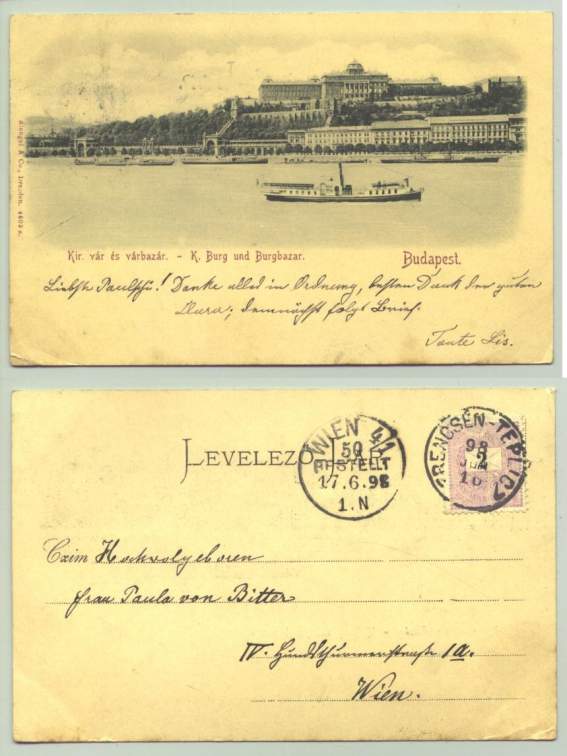 Stengel & Co., Dresden. 4603 a.
Kir. vár és várbazár. - K. Burg und Burgbazar.
Budapest.
Liebste Paulschi! Danke alles in Ordnung, besten Dank der guten
Mara; demnächst folgt Brief.
Tante Lis.
LEVELEZŐ-LAP.
WIEN 4/1
50
BESTELLT
17.6.98
1.N
TRENCSÉN-TEPLICZ
98
16
Hochwolgeboren
Frau Paula von Bitter
IV. Hundsthurmerstraße 1a.
Wien.